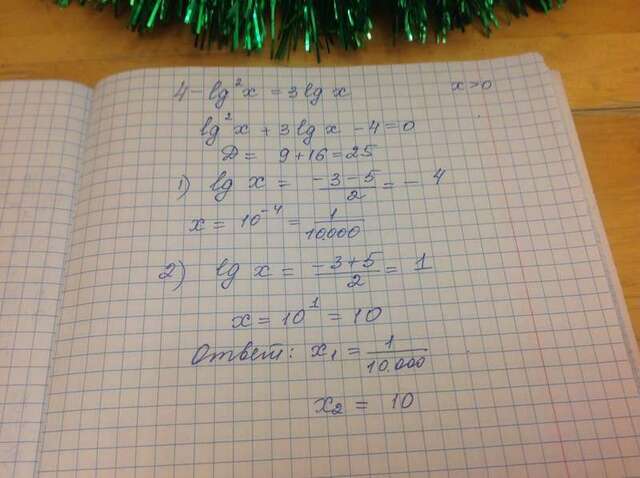 4 - lg²x = 3lg x x>0
lg²x + 3lg x - 4 = 0
D = 9 + 16 = 25
1) lg x = (-3-5)/2 = -4
x = 10⁻⁴ = 1/10.000
2) lg x = (-3+5)/2 = 1
x = 10¹ = 10
Ответ: x₁ = 1/10.000
x₂ = 10